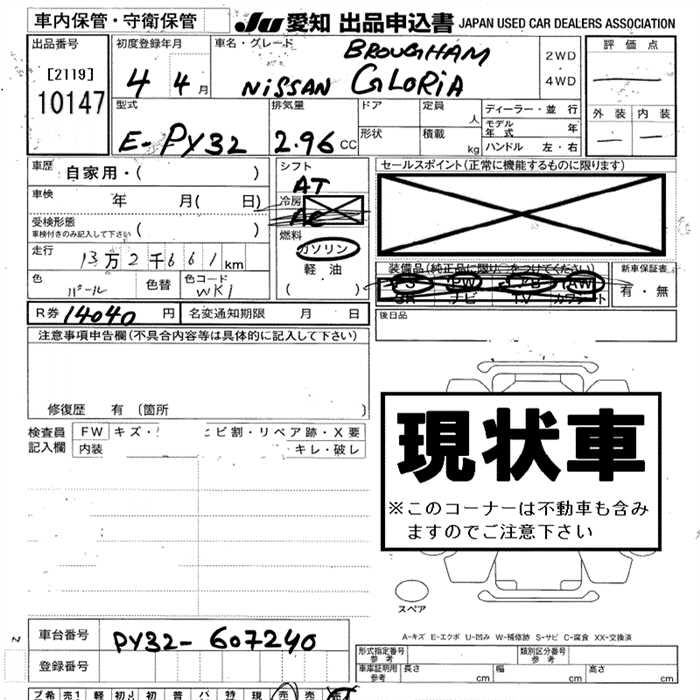 車内保管・守衛保管 JU 愛知 出品申込書 JAPAN USED CAR DEALERS ASSOCIATION
出品番号 初度登録年月 車名・グレード BROUGHAM 2WD 評価点
[2119] 4 4月 NISSAN GLORIA 4WD
10147
型式 排気量 ドア 定員 人 ディーラー・並行 外装 内装
E-PY32 2.96 CC 形状 積載 kg モデル年式 年
ハンドル 左・右
車歴 自家用・( ) シフト AT セールスポイント(正常に機能するものに限ります)
車検 年 月( 日) 冷房 AC
受検形態 ( )
車検付きのみ記入して下さい
燃料 ガソリン
走行 13万2千661km 軽油 装備品(純正品に限り○をつけてください) 新車保証書
色 パール 色替 色コード WK1 ( ) PS PW AW 有・無
SR ナビ TV カワシート
R券 14040円 名変通知期限 月 日 後日品
注意事項申告欄(不具合内容等は具体的に記入して下さい)
修復歴 有 (箇所 )
検査員記入欄 FW キズ・ ヒビ割・リペア跡・X要
内装 キレ・破レ
現状車
※このコーナーは不動車も含み
ますのでご注意下さい
スペア
A-キズ E-エクボ U-凹み W-補修跡 S-サビ C-腐食 XX-交換済
車台番号 PY32-607240
登録番号
形式指定番号 参考 類別区分番号 参考
車庫証明用 参考 長さ cm 幅 cm 高さ cm